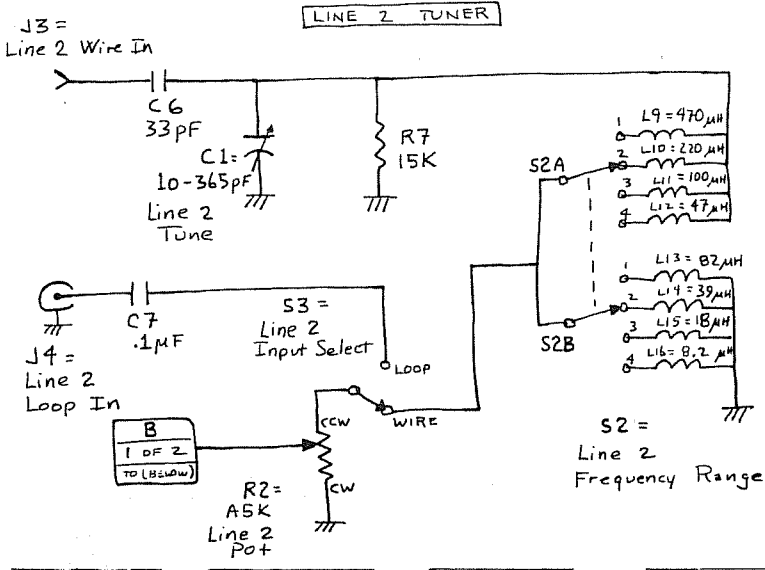 LINE 2 TUNER
J3 =
Line 2 Wire In
C6
33pF
C1 =
10-365pF
Line 2
Tune
R7
15K
S2A
1 L9 = 470 μH
2 L10 = 220 μH
3 L11 = 100 μH
4 L12 = 47 μH
S2B
1 L13 = 82 μH
2 L14 = 39 μH
3 L15 = 18 μH
4 L16 = 8.2 μH
S2 =
Line 2
Frequency Range
C7
.1μF
J4 =
Line 2
Loop In
S3 =
Line 2
Input Select
LOOP
WIRE
B
1 OF 2
TO (BELOW)
CCW
CW
R2 =
A5K
Line 2
Pot